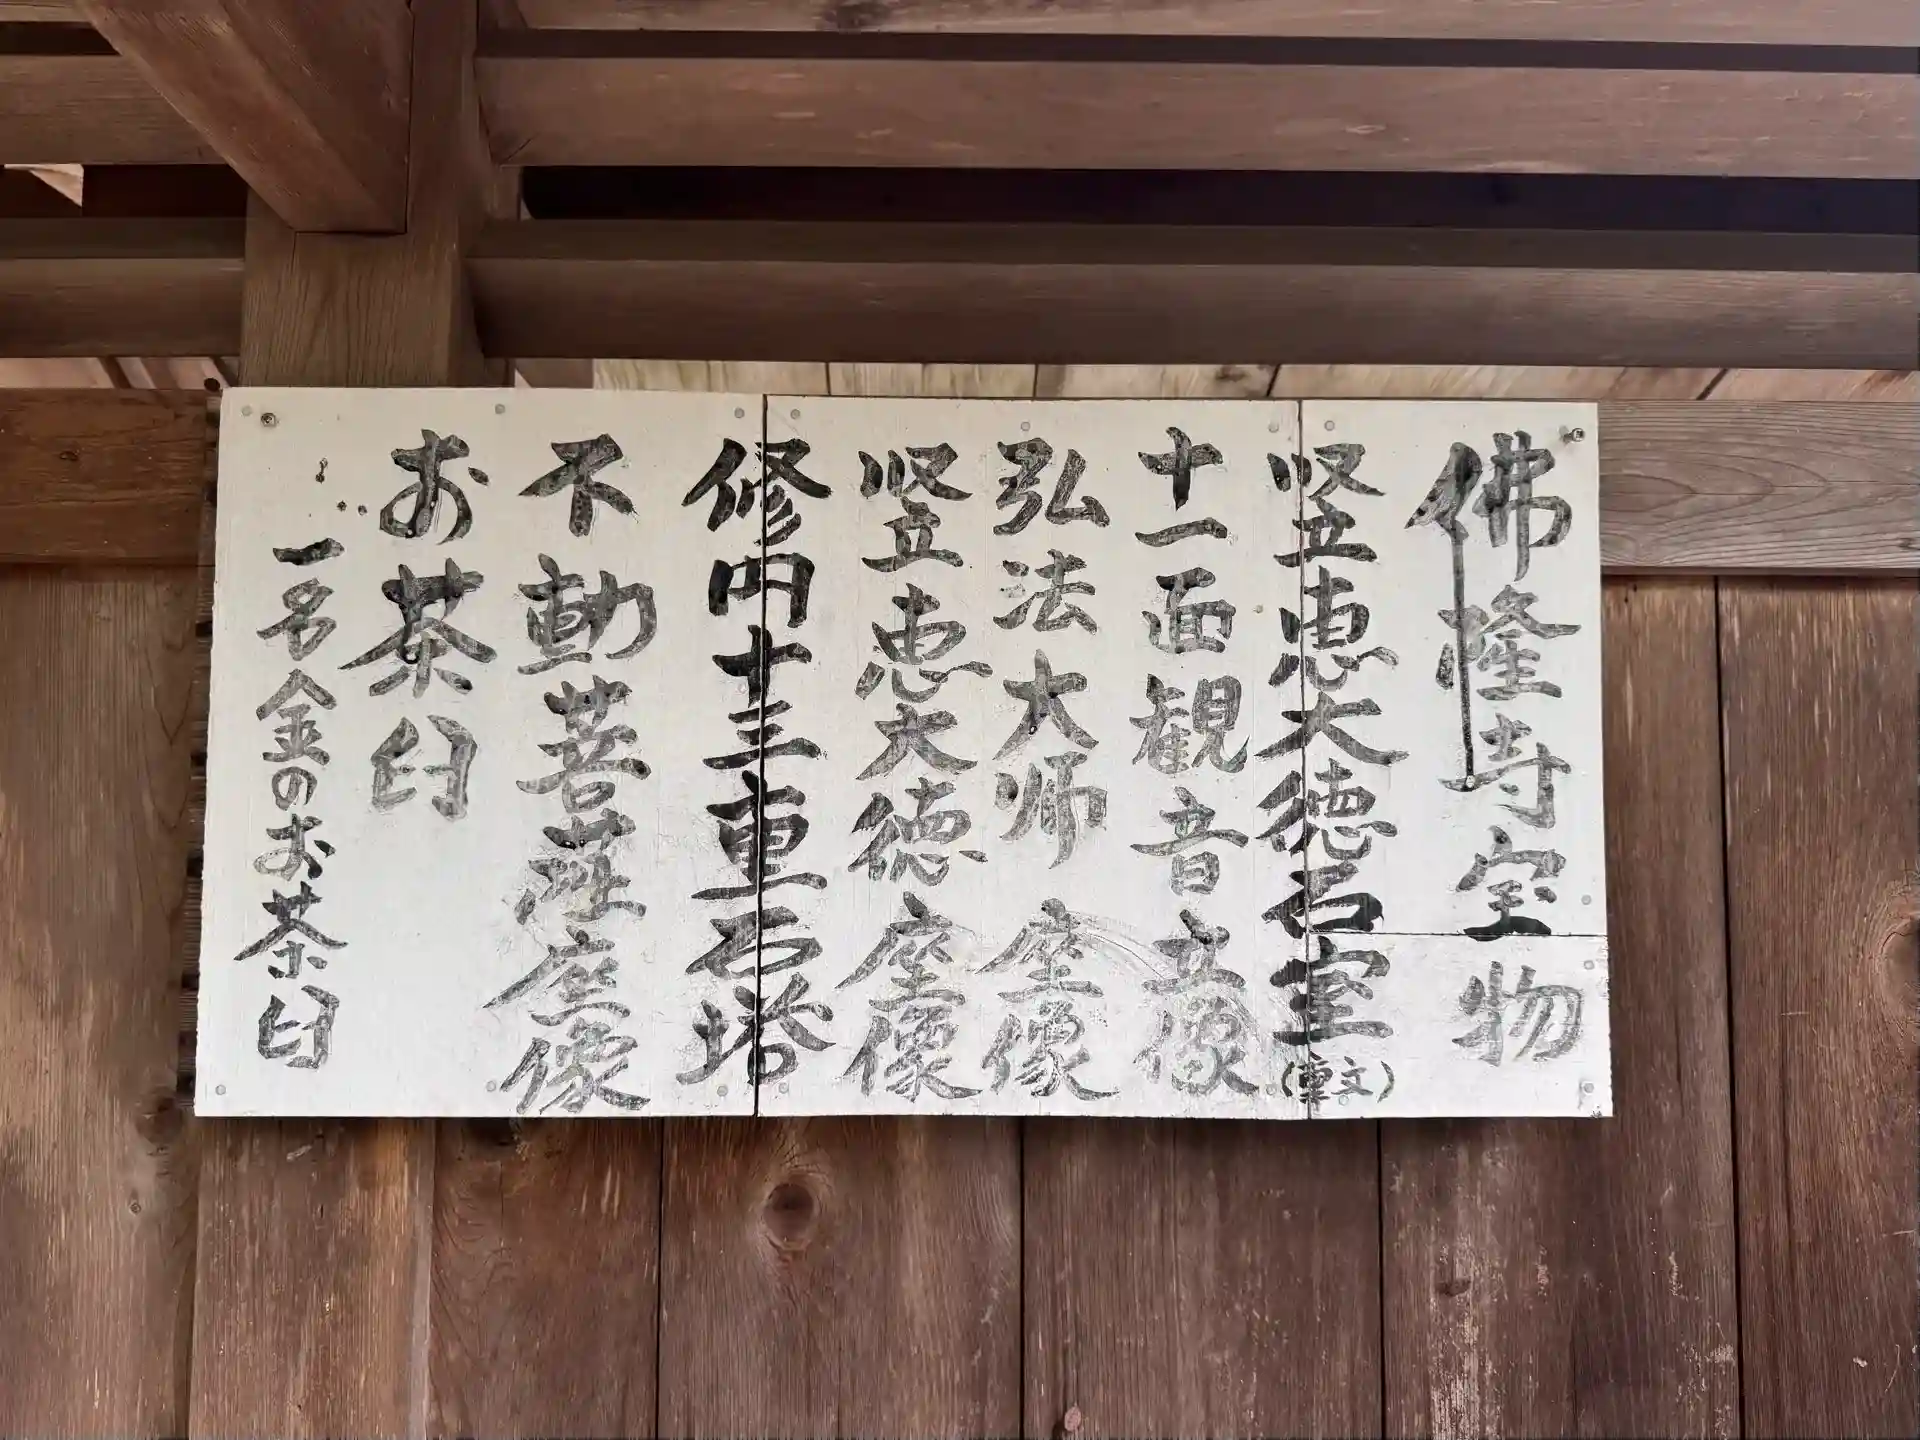 佛隆寺宝物
竪恵大徳石室(重文)
十一面観音立像
弘法大师 座像
竪恵大徳 座像
修円十三重石塔
不動菩薩座像
お茶臼
一名金のお茶臼